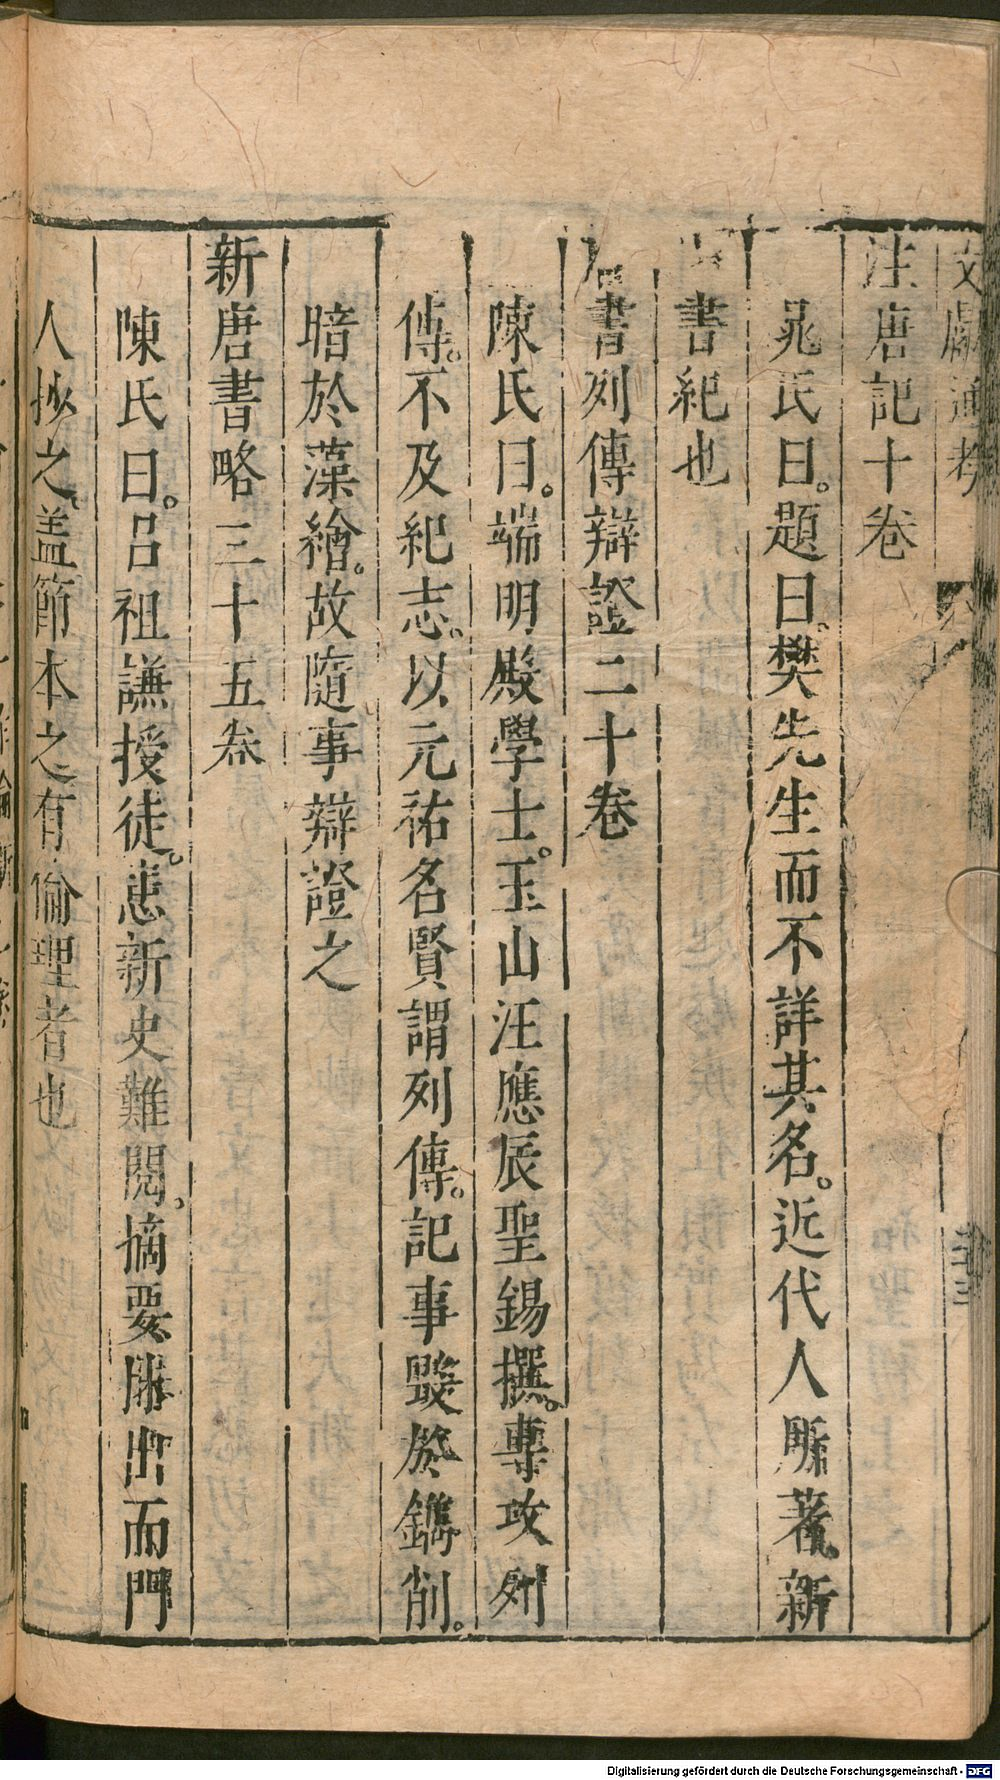 文獻通考
三三
注唐記十卷
晁氏曰。題曰樊先生而不詳其名。近代人所著新
書紀也
書列傳辯證二十卷
陳氏曰。端明殿學士。玉山汪應辰聖錫撰。專攻列
傳。不及紀志。以元祐名賢謂列傳。記事毀於鐫削。
暗於藻繪。故隨事辯證之
新唐書略三十五卷
陳氏曰。呂祖謙授徒。患新史難閱。摘要抹出而門
人抄之。盖節本之有倫理者也
Digitalisierung gefördert durch die Deutsche Forschungsgemeinschaft - DFG